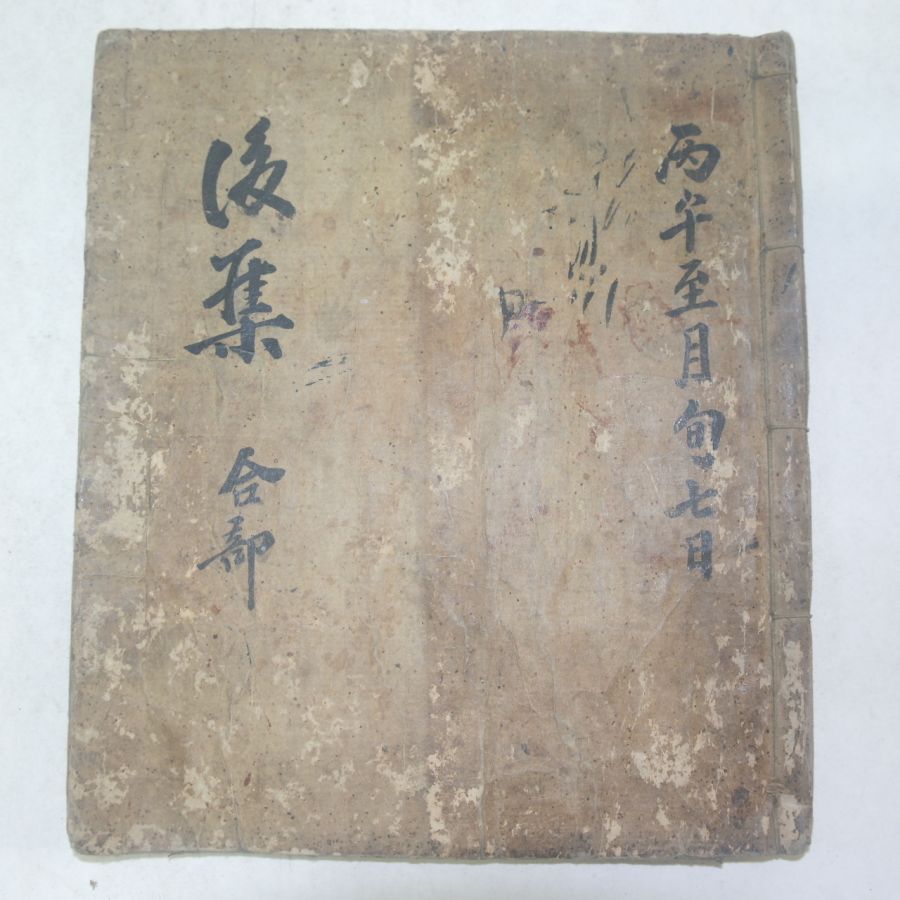 丙午至月旬七日
後集 合部